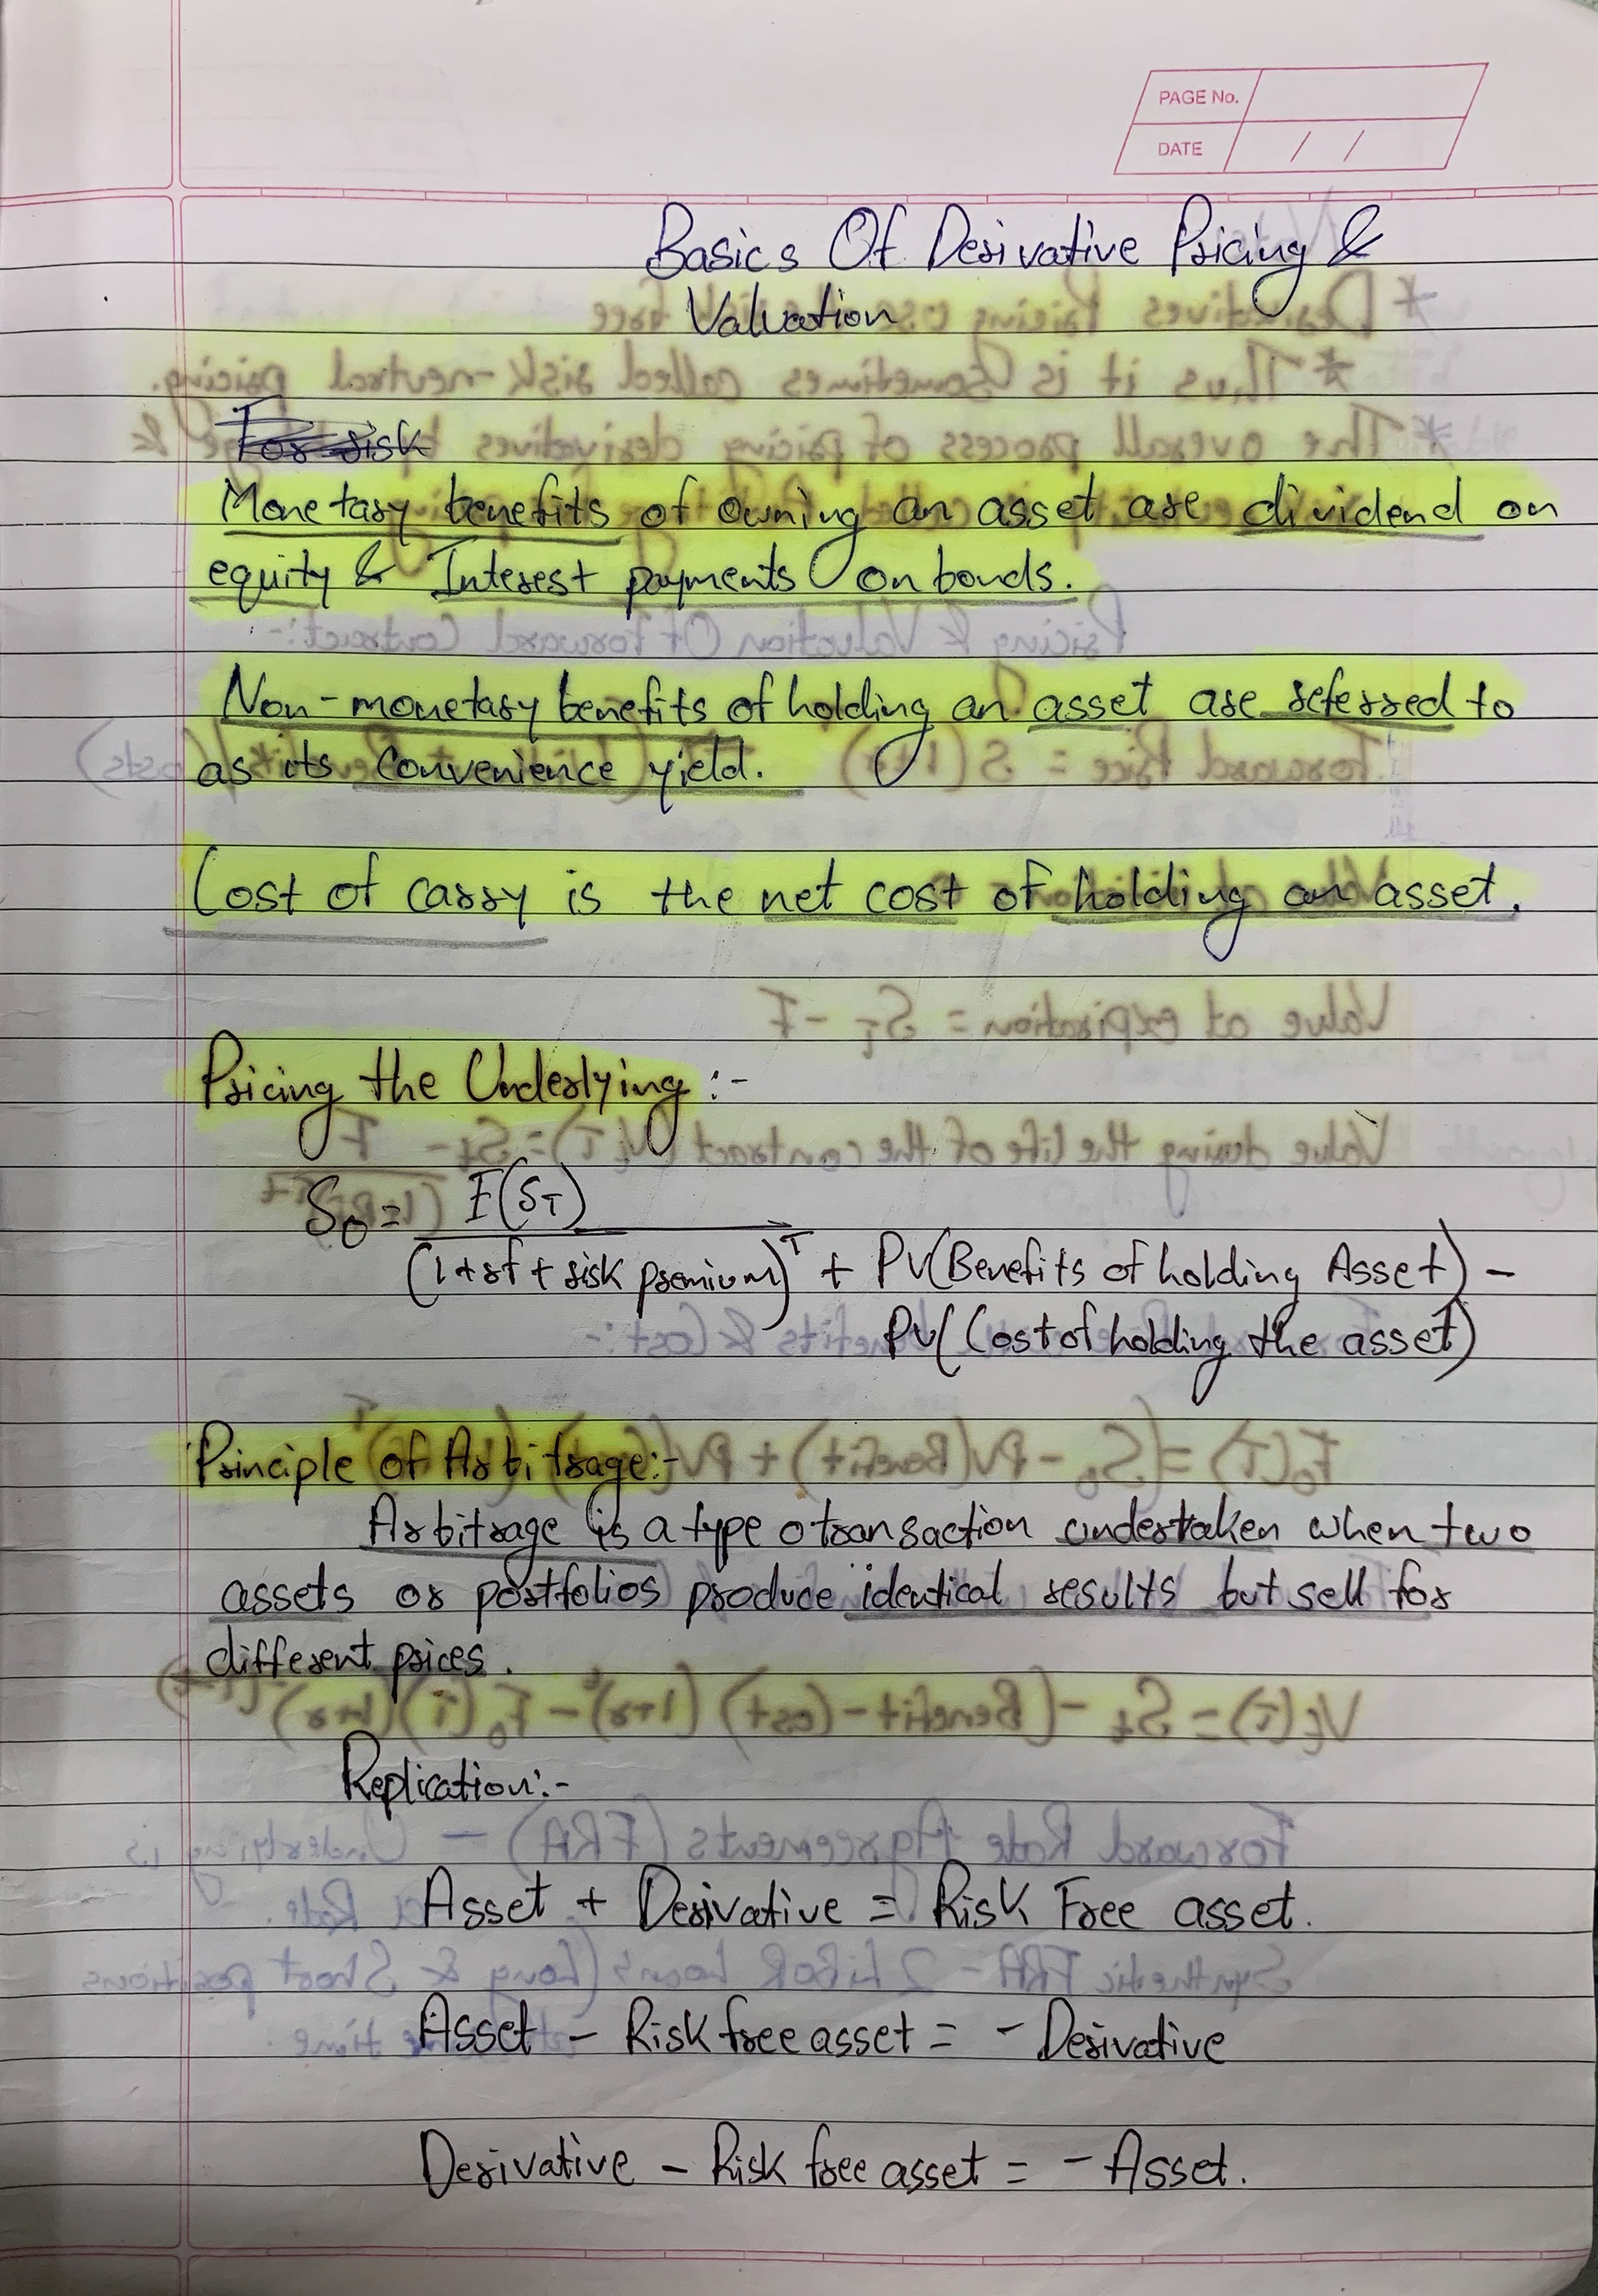 PAGE No.
DATE / /
Basics Of Derivative Pricing &
Valuation
For risk
Monetary benefits of owning an asset are dividend on
equity & Interest payments on bonds.
Non-monetary benefits of holding an asset are referred to
as its Convenience yield.
Cost of carry is the net cost of holding an asset.
Pricing the Underlying :-
S₀ = E(S_T)
(1+rf + risk premium)^T + PV(Benefits of holding Asset) -
PV(Cost of holding the asset)
Principle of Arbitrage:-
Arbitrage is a type o transaction undertaken when two
assets or portfolios produce identical results but sell for
different prices.
Replication:-
Asset + Derivative = Risk Free asset.
Asset - Risk free asset = - Derivative
Derivative - Risk free asset = - Asset.